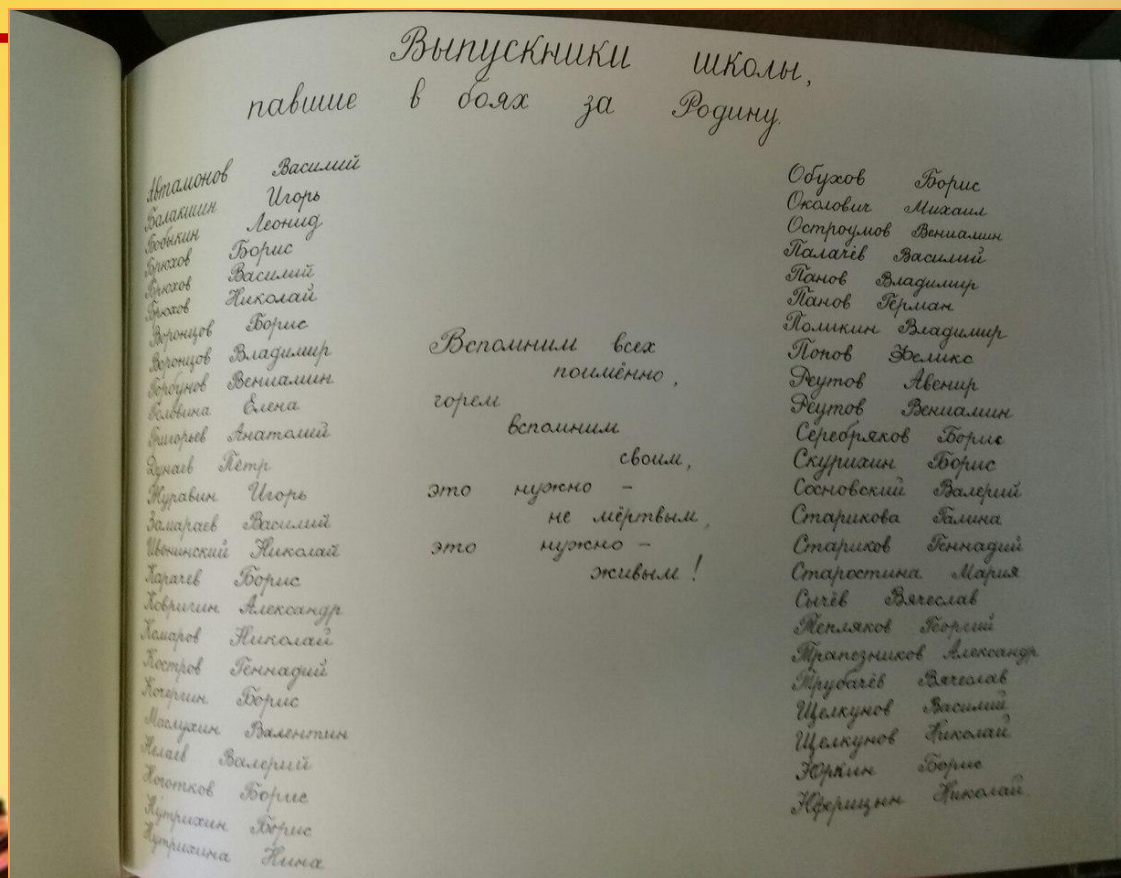 Выпускники школы,
павшие в боях за Родину.
Автамонов Василий
Балакшин Игорь
Бобыкин Леонид
Брюхов Борис
Брюхов Василий
Брюхов Николай
Воронцов Борис
Воронцов Владимир
Горбунов Вениамин
Головина Елена
Григорьев Анатолий
Дунаев Пётр
Журавин Игорь
Замараев Василий
Ивонинский Николай
Карачев Борис
Ковригин Александр
Комаров Николай
Костров Геннадий
Кочергин Борис
Маслухин Валентин
Нелаев Валерий
Ноготков Борис
Нутрихин Борис
Нутрихина Нина
Вспомним всех
поимённо,
горем
вспомним
своим,
это нужно –
не мёртвым,
это нужно –
живым!
Обухов Борис
Околович Михаил
Остроумов Вениамин
Палачёв Василий
Панов Владимир
Панов Герман
Поликин Владимир
Попов Феликс
Реутов Авенир
Реутов Вениамин
Серебряков Борис
Скурихин Борис
Сосновский Валерий
Старикова Галина
Стариков Геннадий
Старостина Мария
Сычёв Вячеслав
Тепляков Георгий
Трапезников Александр
Трубачёв Вячеслав
Щелкунов Василий
Щелкунов Николай
Юркин Борис
Юферицын Николай.